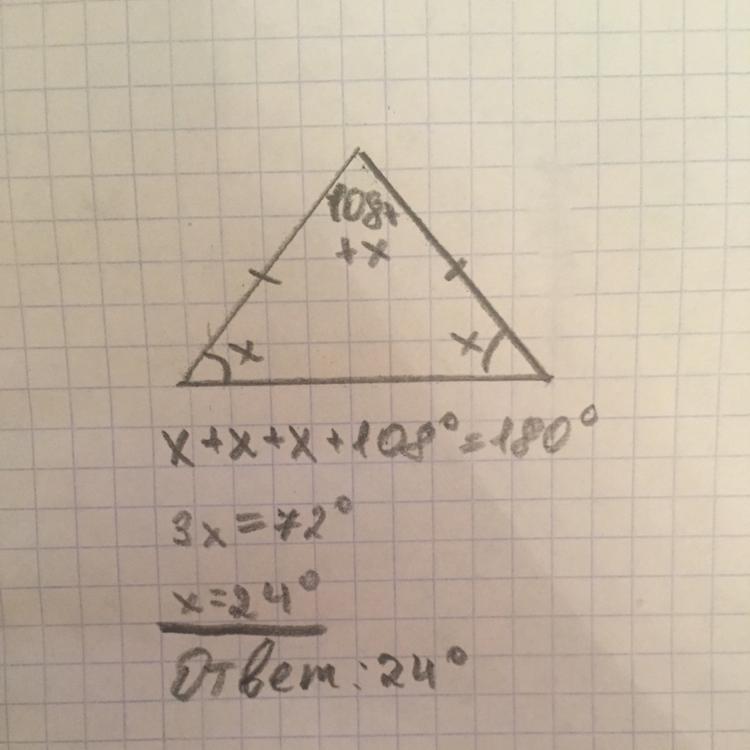 108+
+x
x
x
x+x+x+108°=180°
3x=72°
x=24°
Ответ: 24°